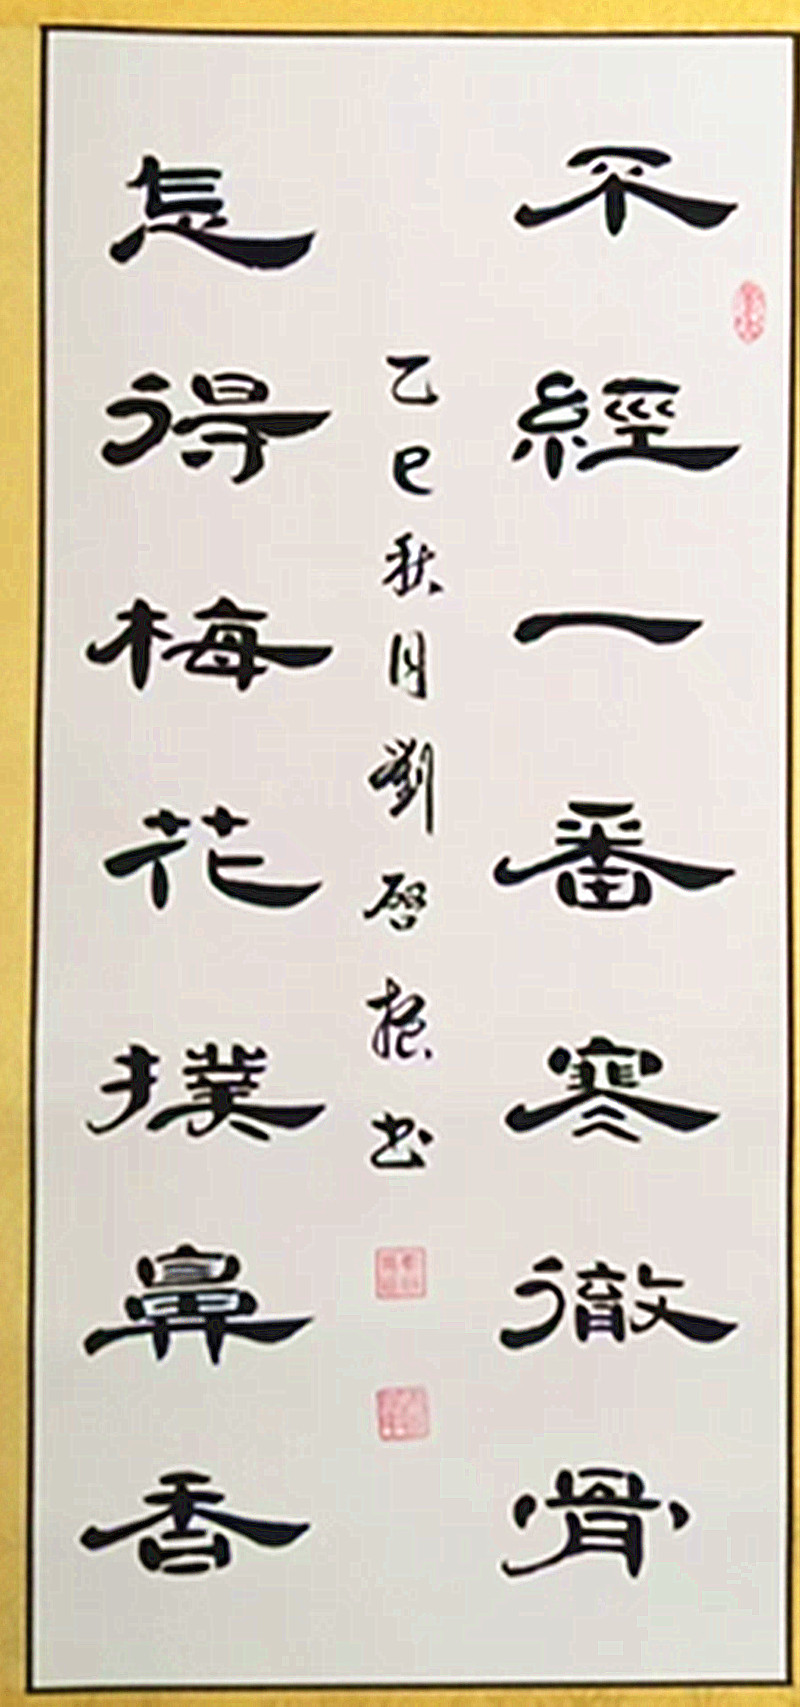 不經一番寒徹骨
乙巳秋月劉啓振書
怎得梅花撲鼻香